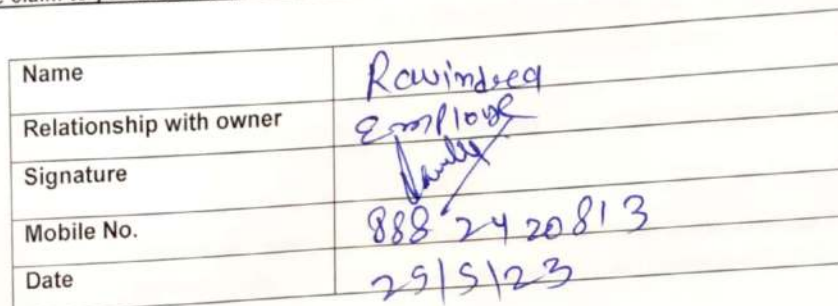 Name Rawindred
Relationship with owner Employe
Signature
Mobile No. 888 2420813
Date 25/5/23